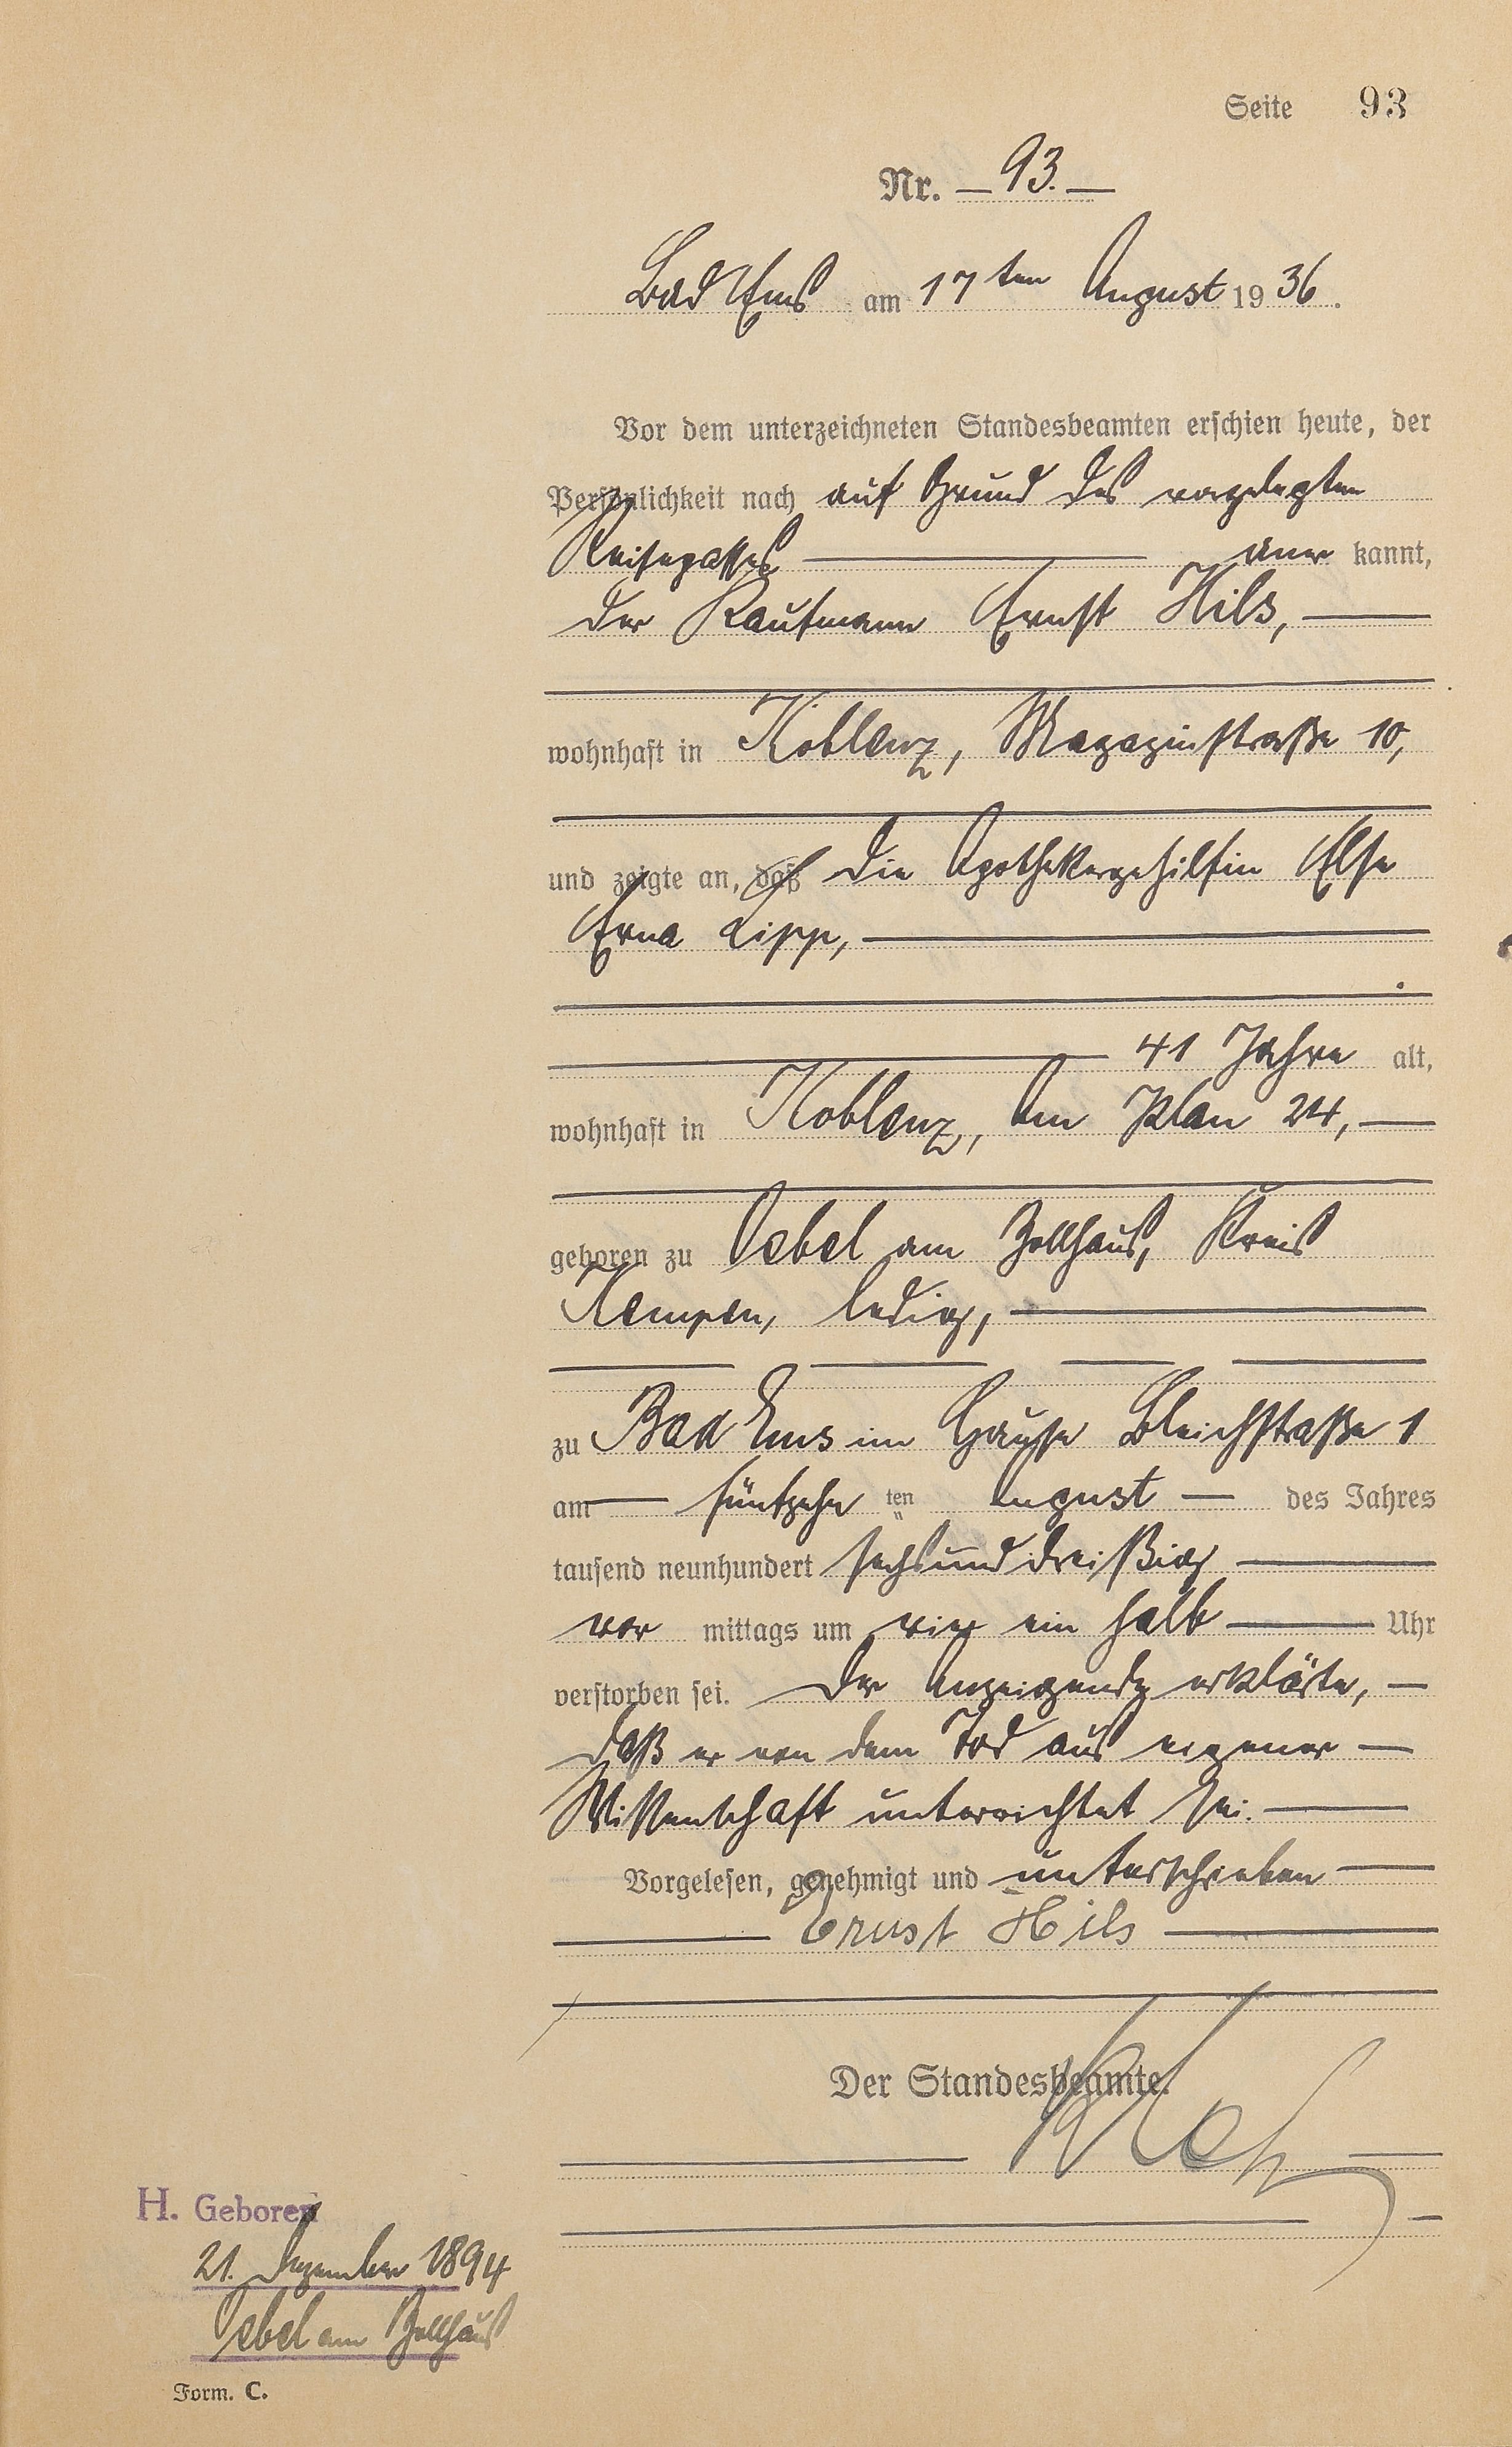 Seite 93
Nr. 93.
Bad Ems am 17ten August 1936.
Vor dem unterzeichneten Standesbeamten erschien heute, der
Persönlichkeit nach auf Grund des vorgelegten
Reisepasses aner kannt,
der Kaufmann Ernst Hils,
wohnhaft in Koblenz, Magazinstraße 10,
und zeigte an, daß die Apothekergehilfin Else
Erna Lipp,
41 Jahre alt,
wohnhaft in Koblenz, Am Plan 24,
geboren zu Oebel am Zollhaus, Kreis
Kempen, ledig,
zu Bad Ems im Hause Bleichstraße 1
am fünfzehn ten August des Jahres
tausend neunhundert sechsunddreißig
vor mittags um vier ein halb Uhr
verstorben sei. Der Anzeigende erklärte,
daß er von dem Tod aus eigener
Wissenschaft unterrichtet sei.
Vorgelesen, genehmigt und unterschrieben
Ernst Hils
Der Standesbeamte.
H. Geboren
21. Dezember 1894
Oebel am Zollhaus
Form. C.